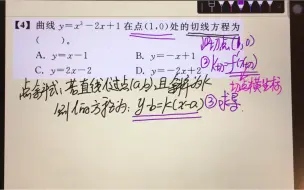 【4】曲线 y=x³-2x+1 在点(1,0)处的切线方程为
(　　)。
A. y=x-1
B. y=-x+1
C. y=2x-2
D. y=-2x+2
点斜式:若直线l过点(a,b),且斜率为k
则l的方程为: y-b=k(x-a)
切点(1,0)
②k切=f'(x₀)
切点横坐标
③求导